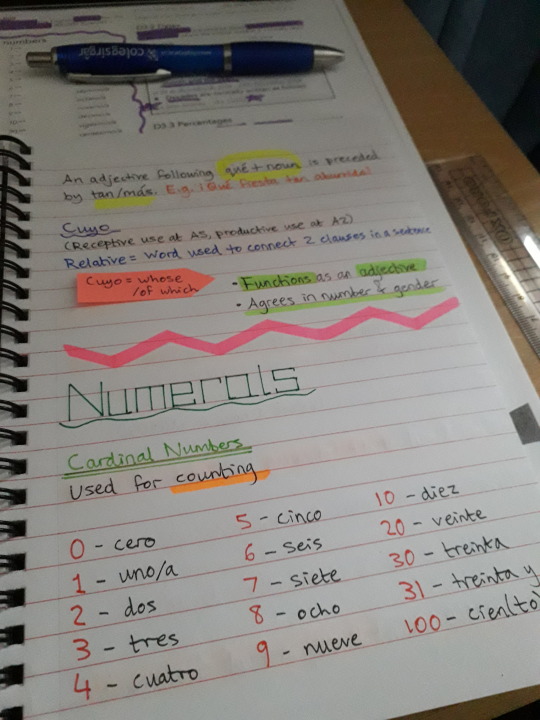 numbers
colegsirgâr
D3.3 Percentages
An adjective following qué + noun is preceded
by tan/más. E.g. ¡Qué fiesta tan aburrida!
Cuyo
(Receptive use at AS, productive use at A2)
Relative = Word used to connect 2 clauses in a sentence
Cuyo = whose
/of which
• Functions as an adjective
• Agrees in number & gender
Numerals
Cardinal Numbers
Used for counting
0 - cero
1 - uno/a
2 - dos
3 - tres
4 - cuatro
5 - cinco
6 - seis
7 - siete
8 - ocho
9 - nueve
10 - diez
20 - veinte
30 - treinta
31 - treinta y
100 - cien(to)